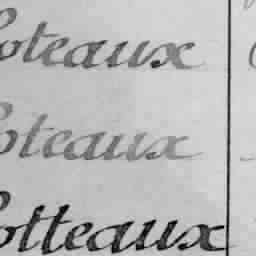 oteaux
oteaux
otteaux